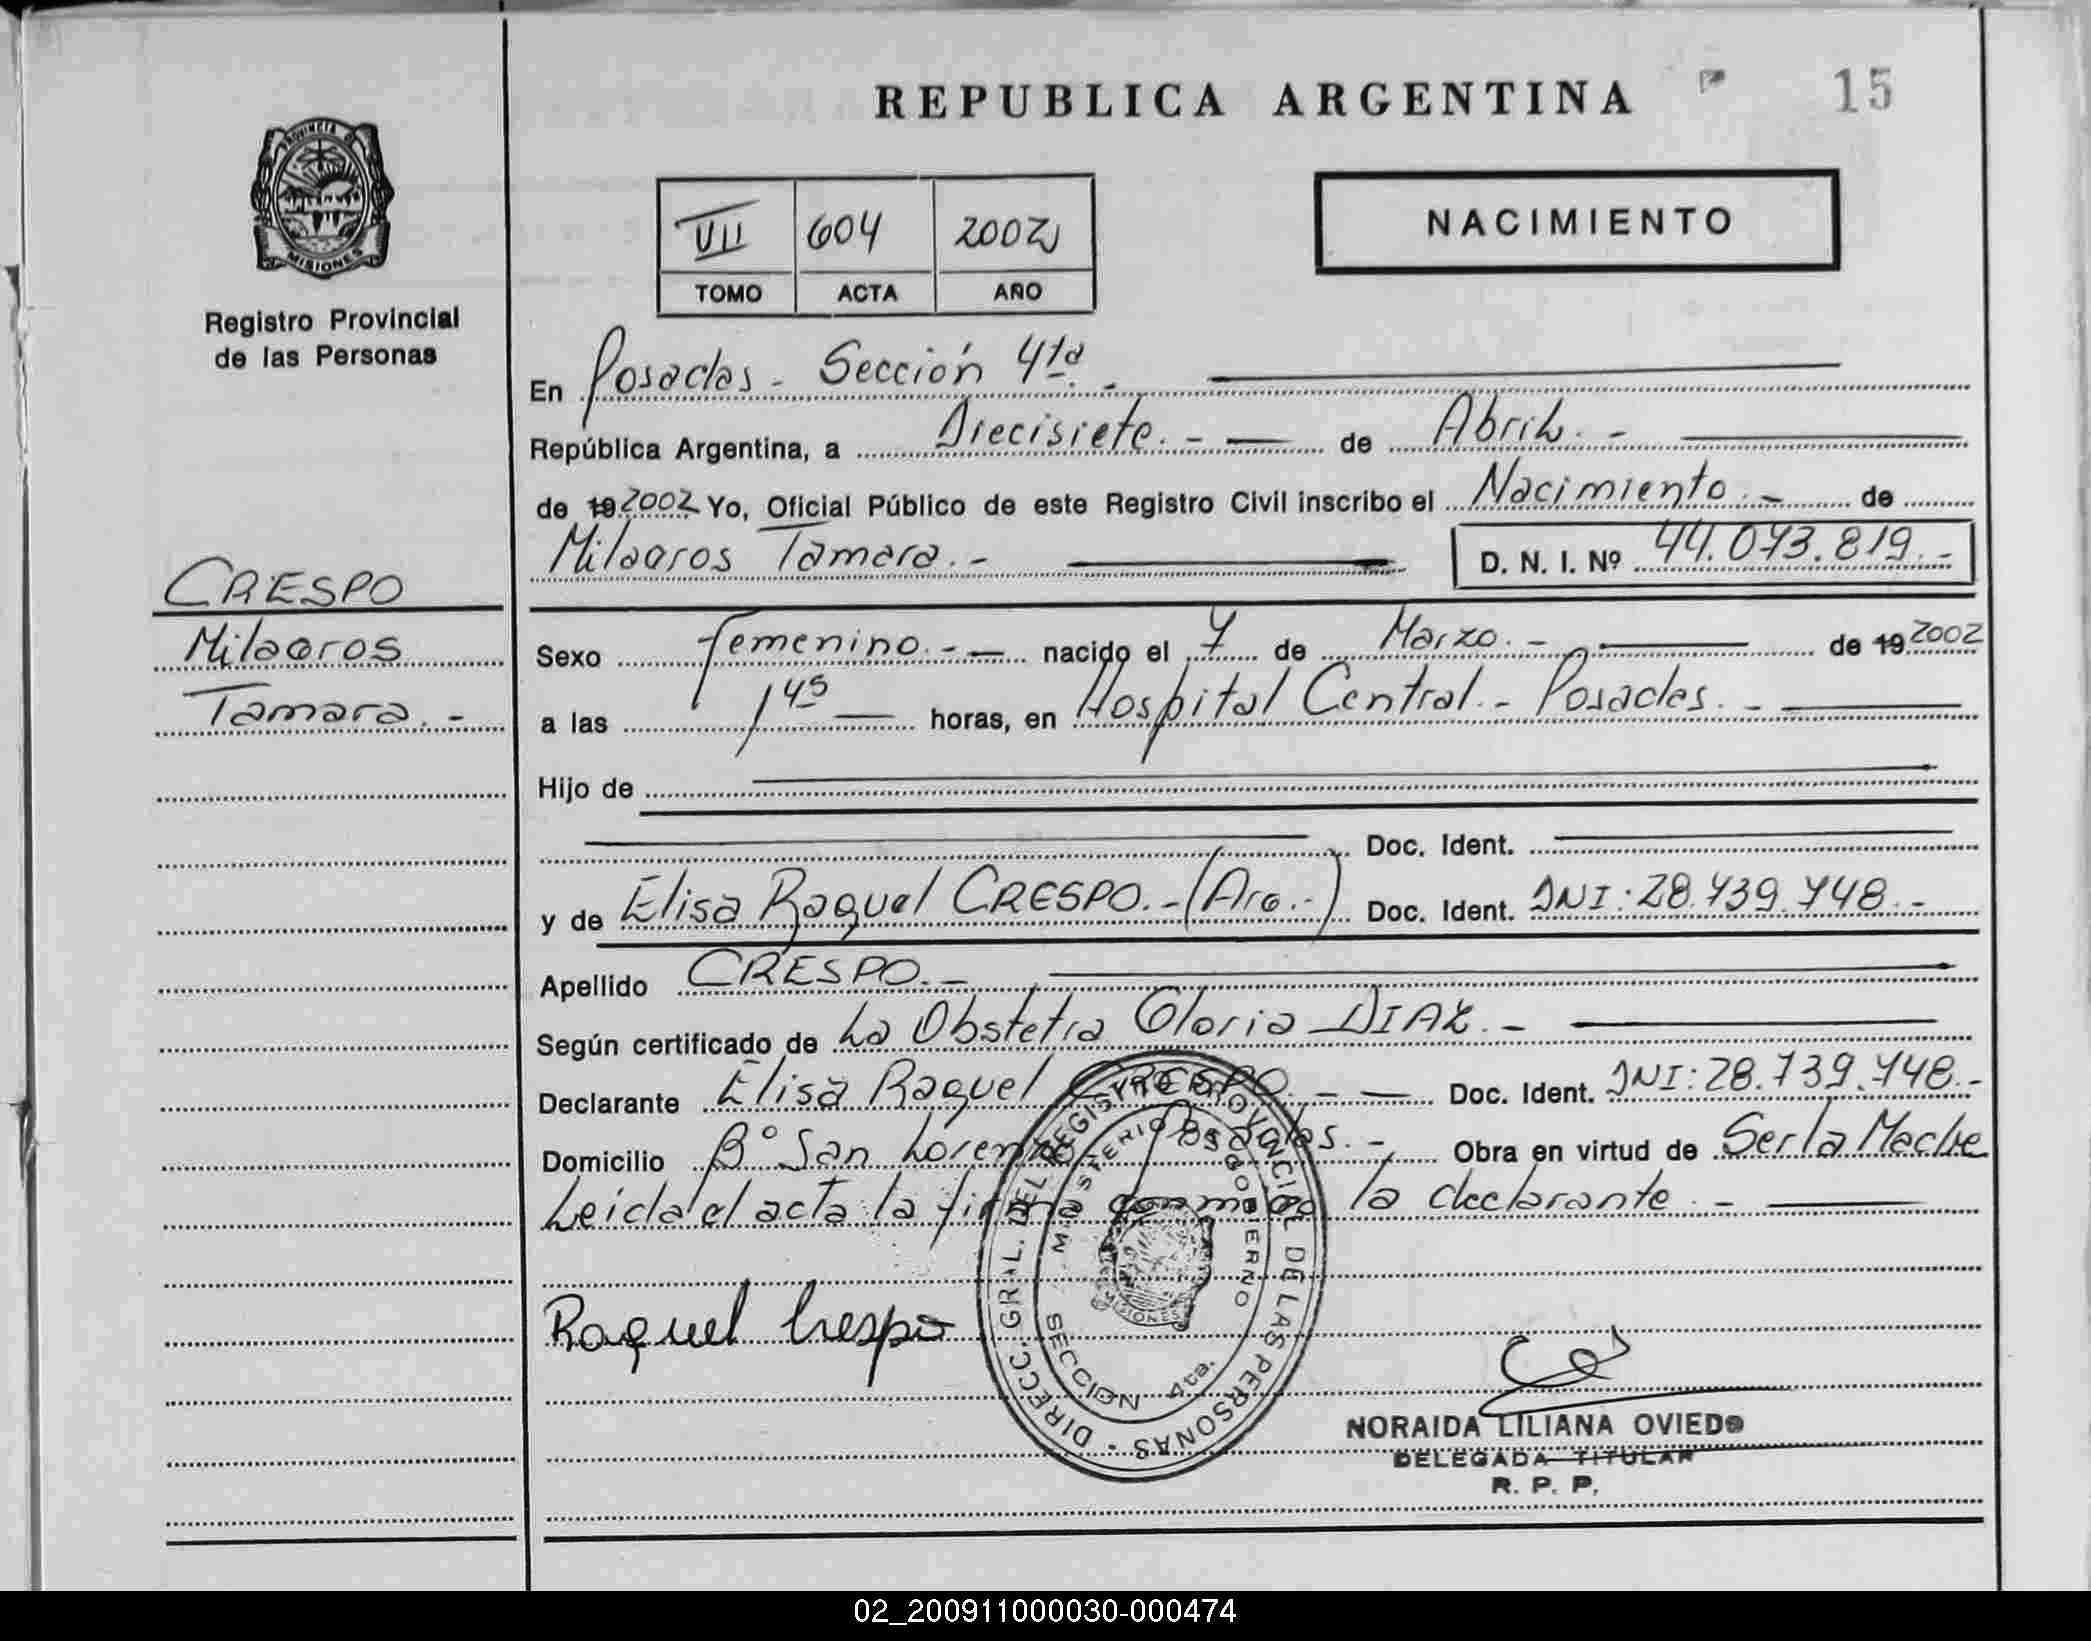 REPUBLICA ARGENTINA
15
PROVINCIA DE
MISIONES
Registro Provincial
de las Personas
VII 604 2002
TOMO ACTA AÑO
NACIMIENTO
En Posadas - Sección 4ta. -
República Argentina, a Diecisiete. - de Abril. -
de 19 2002 Yo, Oficial Público de este Registro Civil inscribo el Nacimiento. - de
Milagros Tamara. - D. N. I. Nº 44.073.819. -
CRESPO
Milagros
Tamara. -
Sexo Femenino. - nacido el 7 de Marzo. - de 19 2002
a las 1 45 horas, en Hospital Central. - Posadas. -
Hijo de
Doc. Ident.
y de Elisa Raquel CRESPO. - (Arg. -) Doc. Ident. DNI: 28.739.748. -
Apellido CRESPO. -
Según certificado de La Obstetra Gloria DIAZ. -
Declarante Elisa Raquel CRESPO. - Doc. Ident. DNI: 28.739.748. -
Domicilio Bº San Lorenzo Posadas. - Obra en virtud de Ser la Madre
Leida el acta la firma conmigo la declarante. -
DIRECC. GRAL. DEL REGISTRO PROVINCIAL DE LAS PERSONAS
MINISTERIO DE GOBIERNO
MISIONES
SECCION 4ta.
Raquel Crespo
NORAIDA LILIANA OVIEDO
DELEGADA TITULAR
R. P. P.
02_200911000030-000474